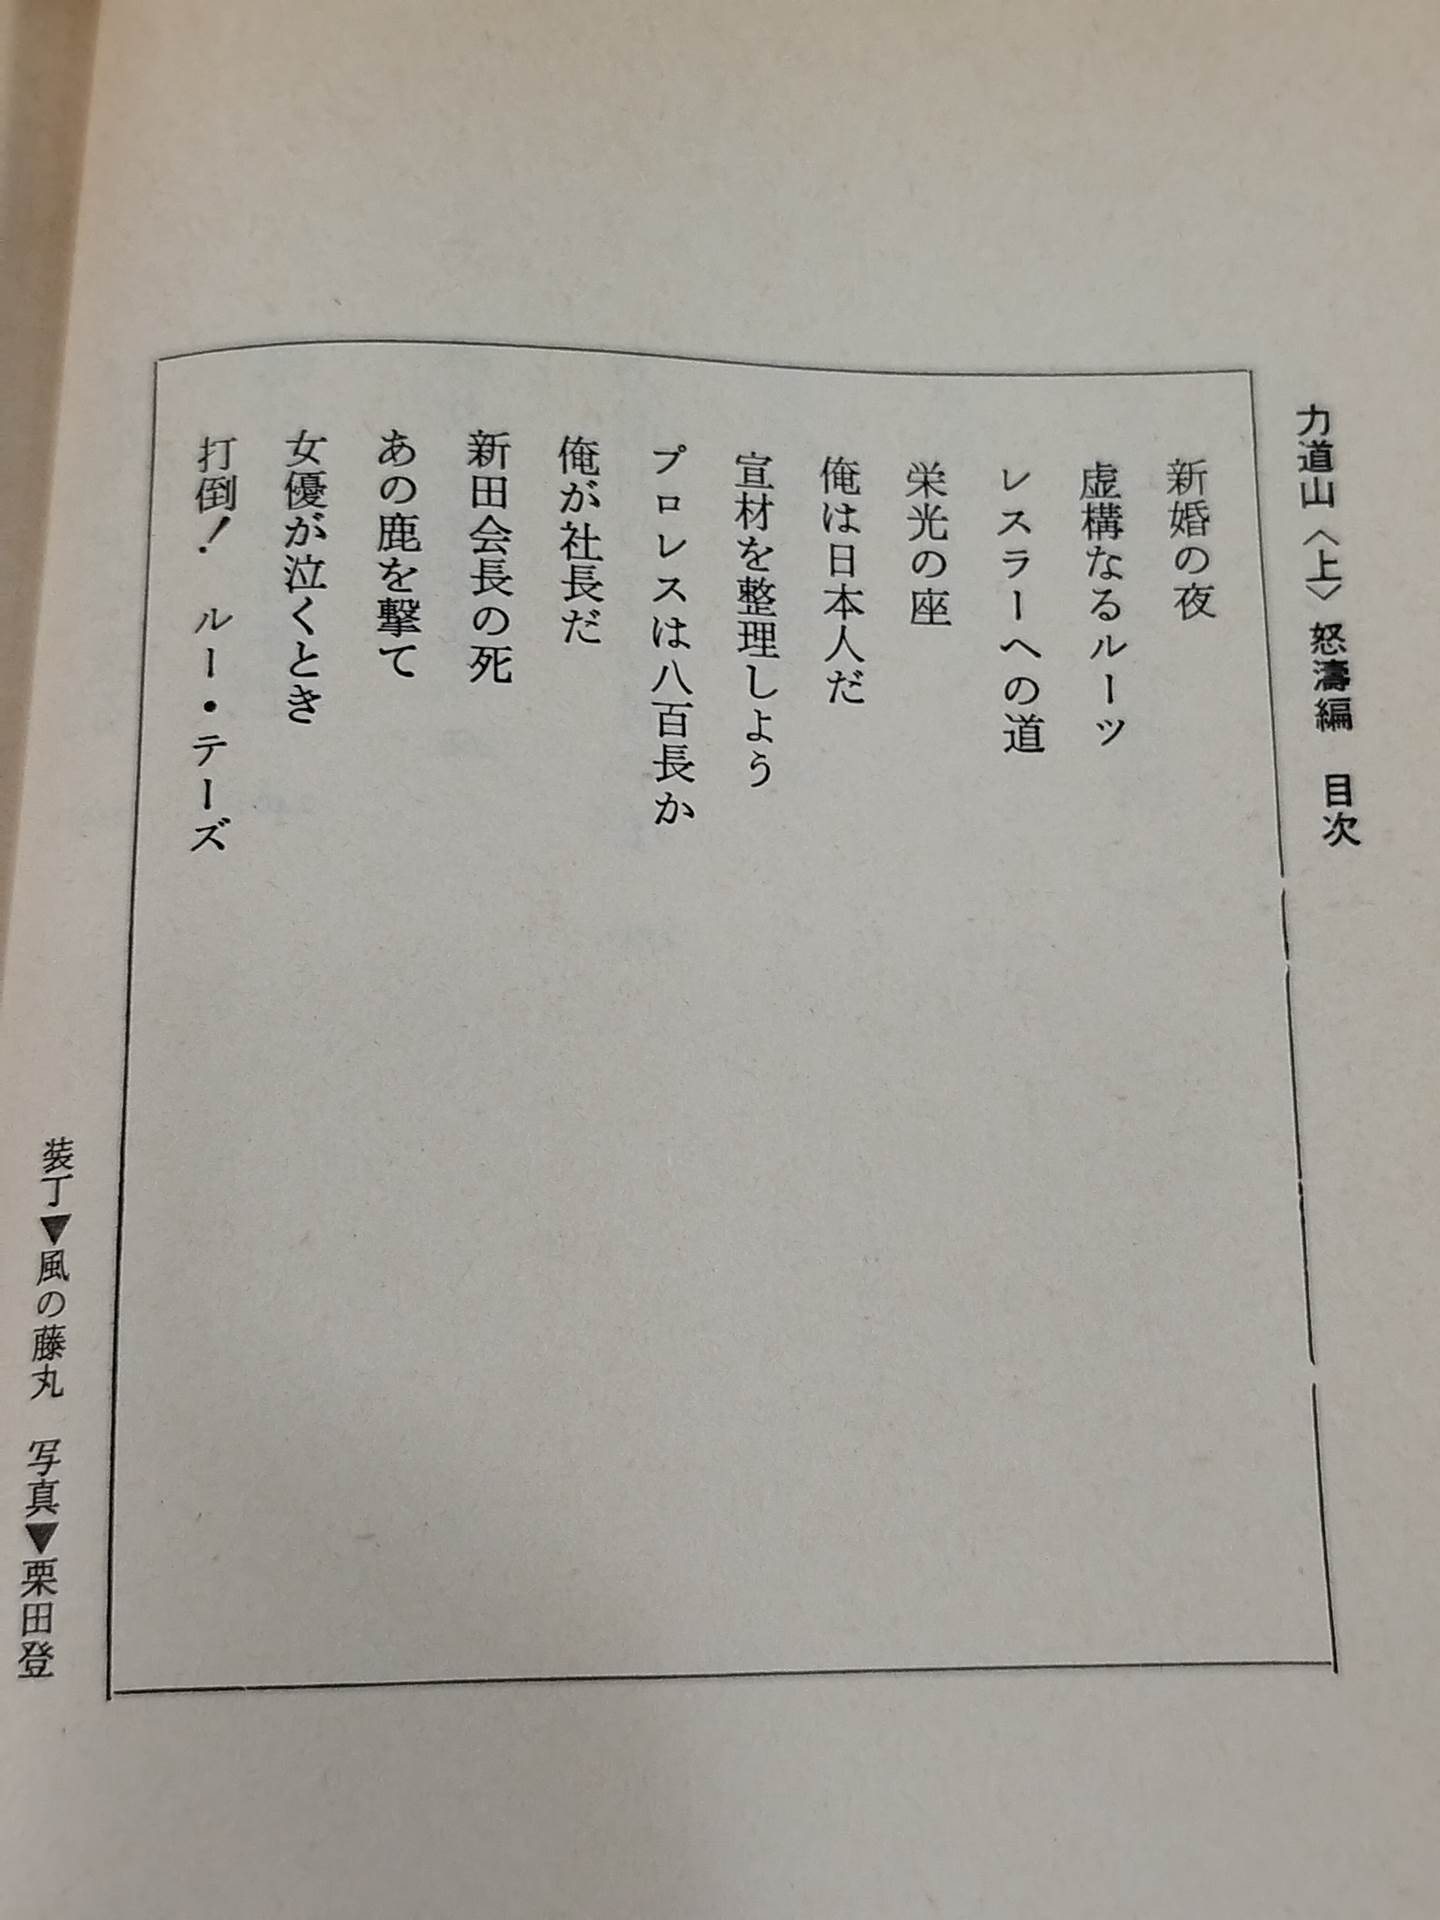 力道山〈上〉怒濤編　目次
新婚の夜
虚構なるルーツ
レスラーへの道
栄光の座
俺は日本人だ
宣材を整理しよう
プロレスは八百長か
俺が社長だ
新田会長の死
あの鹿を撃て
女優が泣くとき
打倒！　ルー・テーズ
装丁▼風の藤丸　写真▼栗田登